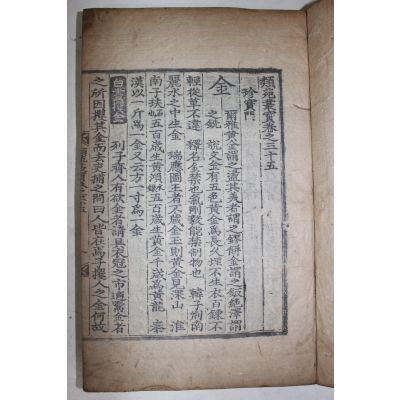 類苑叢寶卷之三十五
珍寶門
金 爾雅黃金謂之盪其美者謂之鏐鉼金謂之鈑絶澤謂
之銑 說文金有五色黃金爲長久埋不生衣百鍊不
輕從革不違 釋名金禁也氣剛毅能禁制物也 韓子荊南
麗水之中生金 瑞應圖王者不藏金玉則黃金見深山 淮
南子玦五百歲生黃澒五百歲生黃金千歲爲黃龍 秦
漢以一斤爲一金又云方一寸爲一金
列子齊人有欲金者請具衣冠之市適鬻金者
之所因攫其金而去吏捕之問曰人皆在焉子攫人之金何故